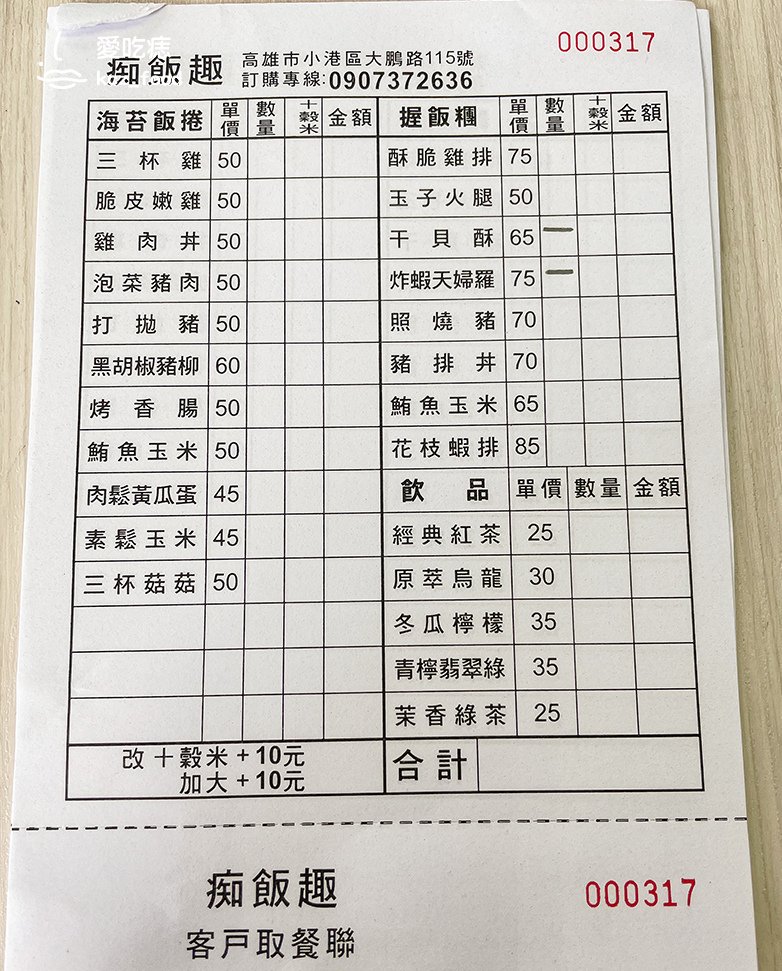 愛吃痣
000317
痴飯趣 高雄市小港區大鵬路115號
訂購專線:0907372636
海苔飯捲 單價 數量 十穀米 金額 握飯糰 單價 數量 十穀米 金額
三杯雞 50 酥脆雞排 75
脆皮嫩雞 50 玉子火腿 50
雞肉丼 50 干貝酥 65 一
泡菜豬肉 50 炸蝦天婦羅 75 一
打拋豬 50 照燒豬 70
黑胡椒豬柳 60 豬排丼 70
烤香腸 50 鮪魚玉米 65
鮪魚玉米 50 花枝蝦排 85
肉鬆黃瓜蛋 45 飲品 單價 數量 金額
素鬆玉米 45 經典紅茶 25
三杯菇菇 50 原萃烏龍 30
冬瓜檸檬 35
青檸翡翠綠 35
茉香綠茶 25
改十穀米+10元 合計
加大+10元
痴飯趣 000317
客戶取餐聯